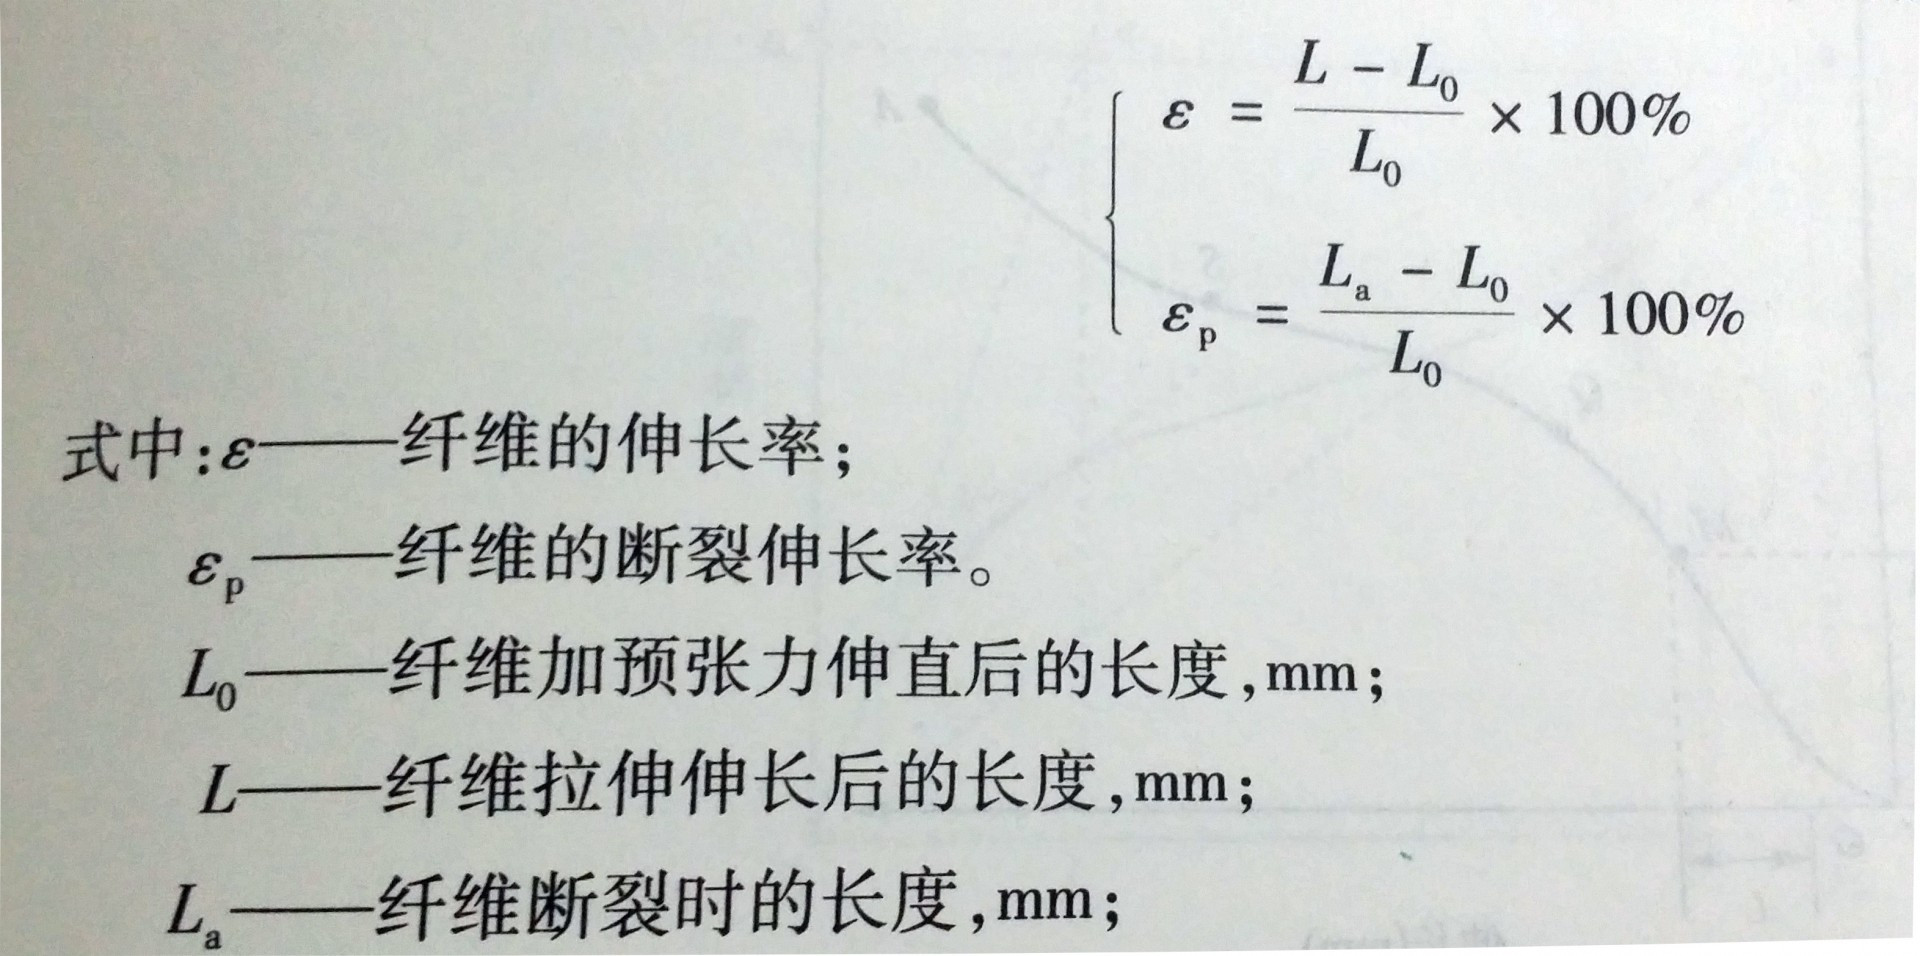 ε = (L - L₀)/L₀ × 100%
εₚ = (Lₐ - L₀)/L₀ × 100%
式中:ε——纤维的伸长率;
εₚ——纤维的断裂伸长率。
L₀——纤维加预张力伸直后的长度,mm;
L——纤维拉伸伸长后的长度,mm;
Lₐ——纤维断裂时的长度,mm;